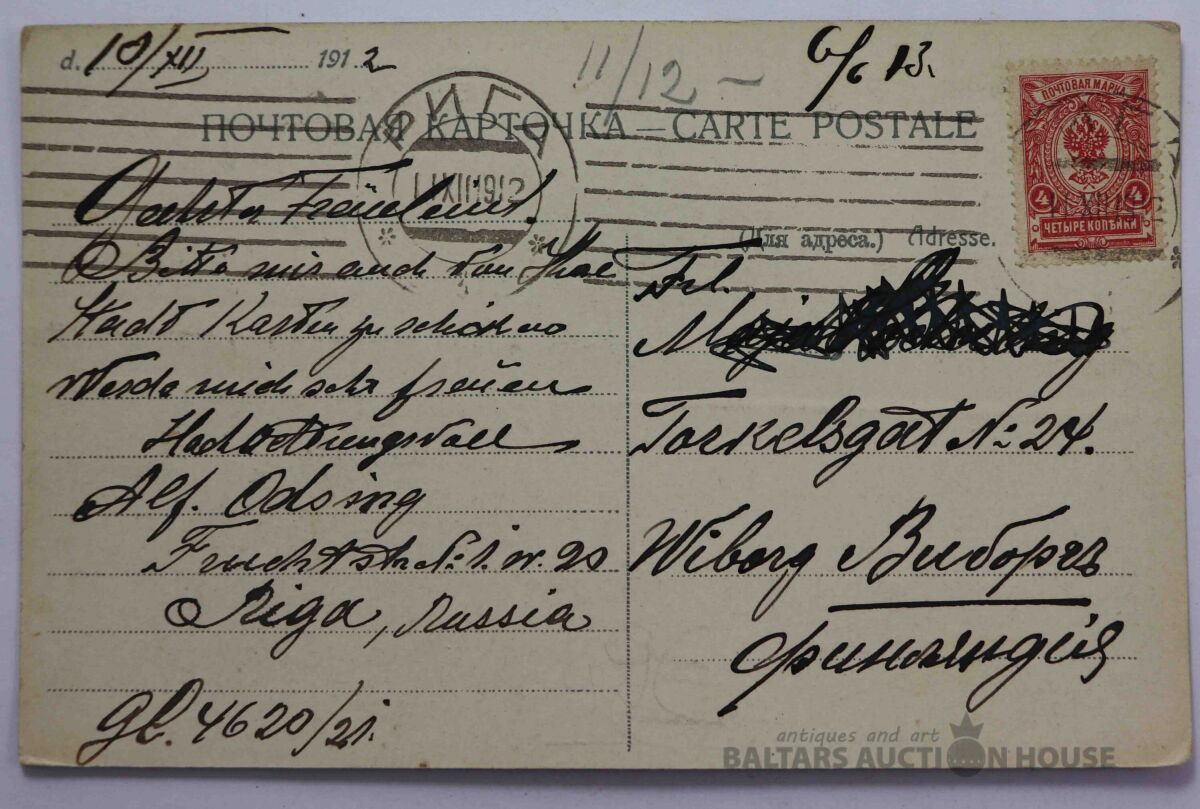 d. 10/XII 1912
11/12 –
6/6 13.
ПОЧТОВАЯ КАРТОЧКА — CARTE POSTALE
РИГА
11 XII 1912
ПОЧТОВАЯ МАРКА
4 4
ЧЕТЫРЕ КОПѢЙКИ
Geehrta Fräulein!
Bitte mir auch von Ihre
Stadt Karten zu schicken
Werde mich sehr freüen
Hochachtungsvoll
Alf. Odsing
Fruchtstr. № 1. w. 20
Riga, Russia
gl. 4620/21.
(Для адреса.) Adresse.
Frl.
Torkelsgat № 24.
Wiborg Виборгъ
Финляндія
antiques and art
BALTARS AUCTION HOUSE